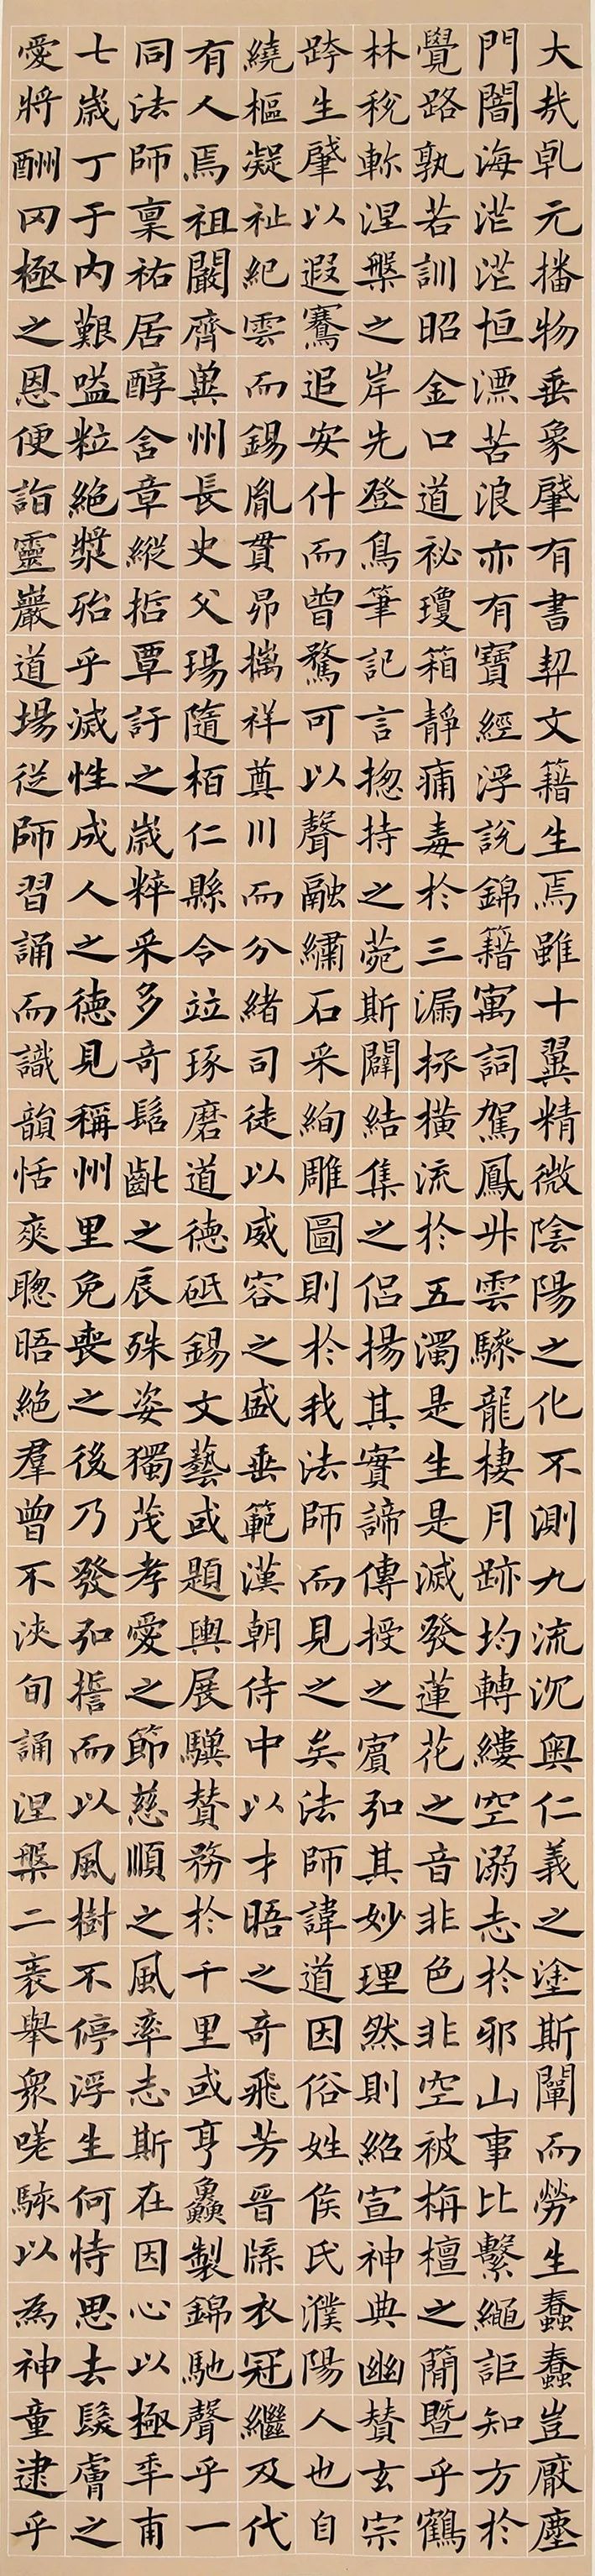 大哉乹元播物垂象肇有書契文籍生焉雖十翼精微陰陽之化不測九流沉奥仁義之塗斯闡而勞生蠢蠢豈厭塵
門闇海茫茫恒漂苦浪亦有寶經浮說錦籍寓詞駕鳳升雲驂龍棲月跡均轉縷空溺志於邪山事比繫繩詎知方於
覺路孰若訓昭金口道祕瓊箱靜痡毒於三漏拯橫流於五濁是生是滅發蓮花之音非色非空被栴檀之簡暨乎鶴
林稅軫涅槃之岸先登鳥筆記言揔持之菀斯闢結集之侣揚其實諦傳授之賓弘其妙理然則紹宣神典幽賛玄宗
跨生肇以遐騫追安什而曾騖可以聲融繡石采絢雕圖則於我法師而見之矣法師諱道因俗姓侯氏濮陽人也自
繞樞凝祉紀雲而錫胤貫昴摛祥奠川而分緒司徒以威容之盛垂範漢朝侍中以才晤之奇飛芳晉牒衣冠繼及代
有人焉祖闞齊冀州長史父瑒隨栢仁縣令竝琢磨道德砥錫文藝或題輿展驥賛務於千里或亨鱻製錦馳聲乎一
同法師稟祐居醇含章縱哲覃訏之歲粹采多奇髫齓之辰殊姿獨茂孝愛之節慈順之風率志斯在因心以極年甫
七歲丁于內艱嗌粒絕漿殆乎滅性成人之德見稱州里免喪之後乃發弘誓而以風樹不停浮生何恃思去髮膚之
愛將酬罔極之恩便詣靈巖道場從師習誦而識韻恬爽聰晤絕羣曾不浹旬誦涅槃二袠舉眾嗟駭以為神童逮乎